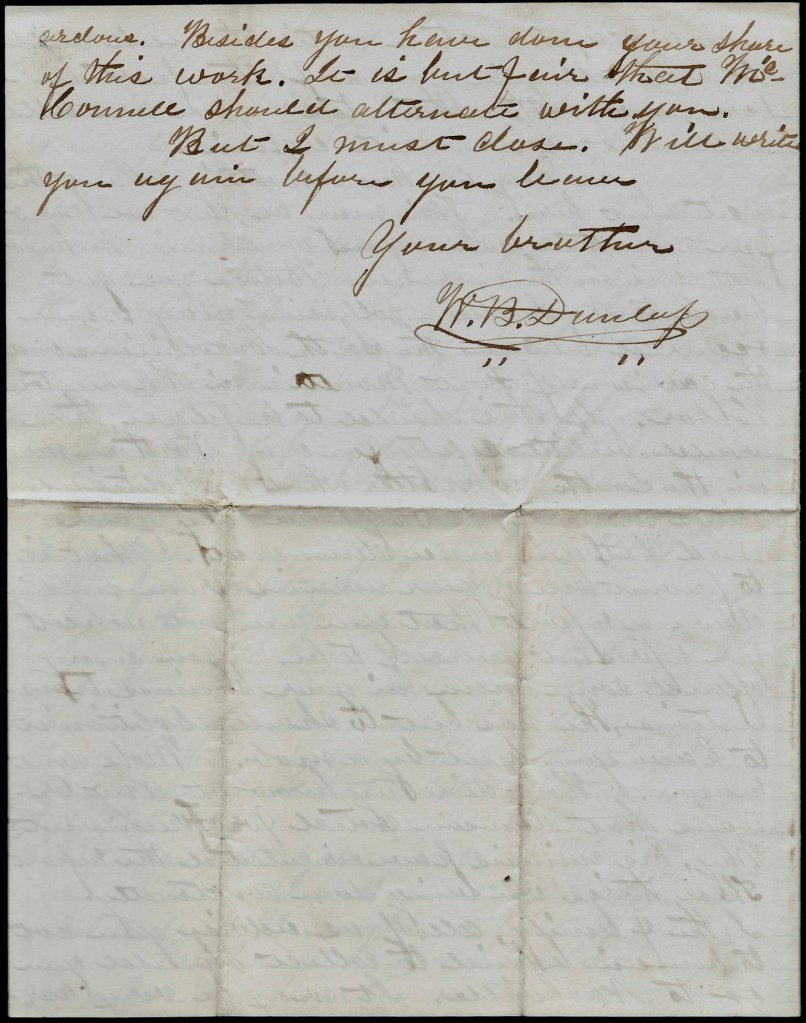 ardous. Besides you have done your share
of this work. It is but fair that Mc-
Connell should alternate with you.
But I must close. Will write
you again before you leave
Your brother
W. B. Dunlap
" "